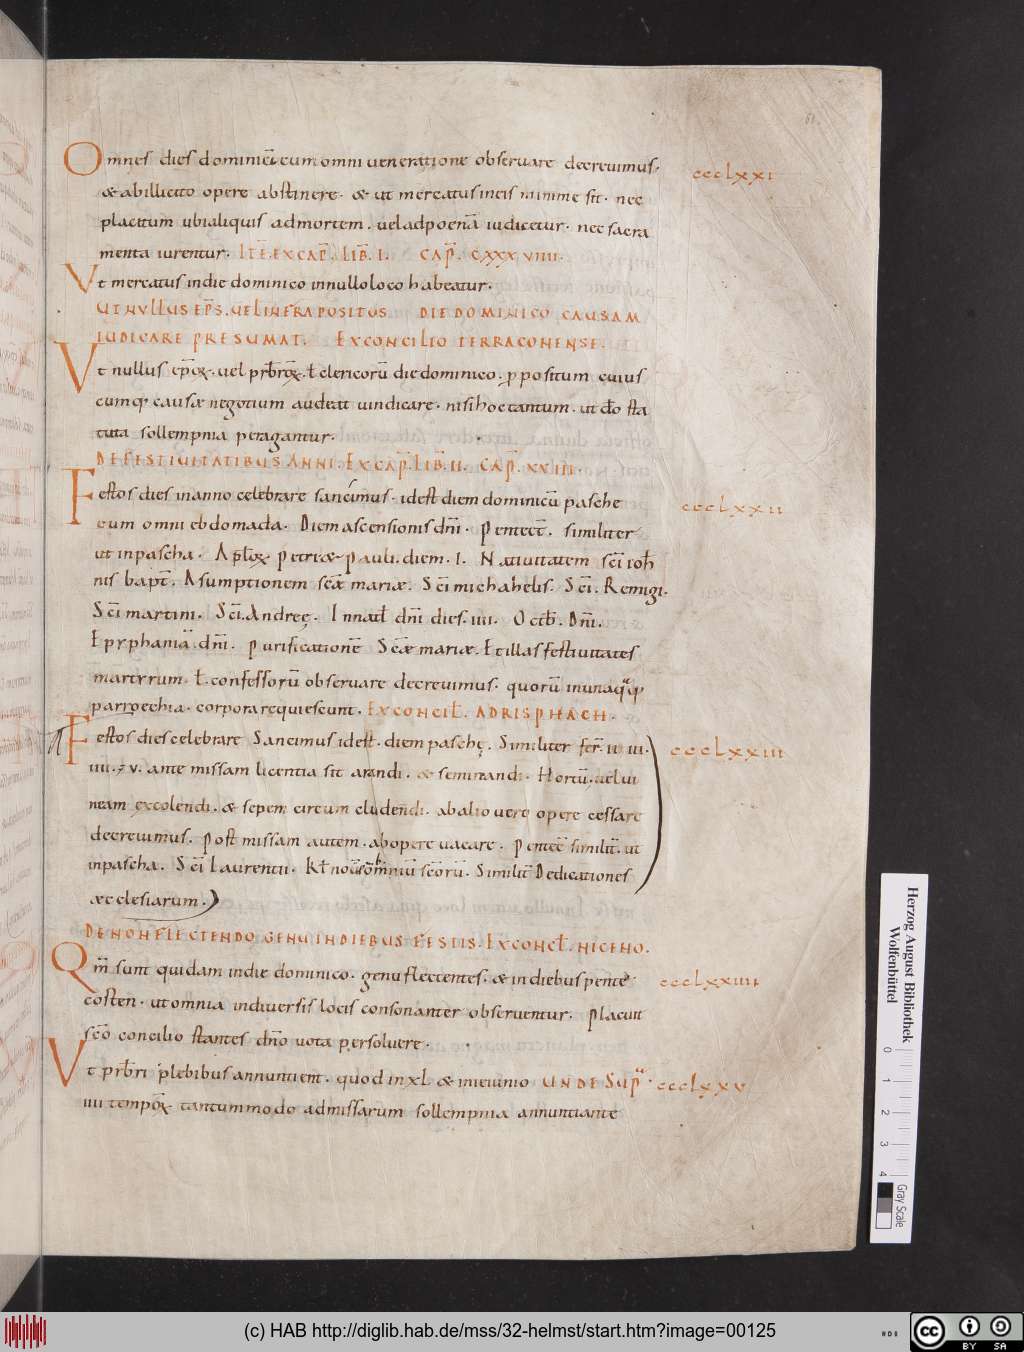 61.
Omnes dies dominicí cum omni ueneratione obseruare decreuimus.
ccclxxi
& ab illicito opere abstinere. & ut mercatus in eis minime sit. nec
placitum ubi aliquis ad mortem. uel ad poenā iudicetur. nec sacra
menta iurentur. ITĒ. EX CAP̄. LIB̄. I. CAP̄. CXXXVIIII.
Vt mercatus in die dominico in nullo loco habeatur.
UT NVLLUS EP̄S. UEL INFRA POSITUS DIE DOMINICO CAUSAM
IUDICARE PRESUMAT. EX CONCILIO TERRACONENSE.
Vt nullus ep̄oꝝ. uel prb̄roꝝ. ł clericorū die dominico. ꝓpositum cuius
cumq; causæ negotium audeat uindicare. nisi hoc tantum. ut dō sta
tuta sollempnia peragantur.
DE FESTIUITATIBUS ANNI. EX CAP̄. LIB̄. II. CAP̄. XXIII.
Festos dies in anno celebrare sancimus. id est diem dominicū pasche
cccclxxii
cum omni ebdomada. Diem ascensionis dn̄i. pentecī. similiter
ut in pascha. Apl̄oꝝ petri & pauli. diem. I. Natiuitatem sc̄i ioh̄
nis bapt̄. Asumptionem sc̄æ mariæ. Sc̄i michahelis. Sc̄i. Remigi.
Sc̄i martini. Sc̄i. Andreę. In nat̄ł dn̄i dies. iiii. Octb̄. Dn̄i.
Epyphaniā. dn̄i. purificationē Sc̄æ mariæ. Et illas festiuitates
martyrum. ł. confessorū obseruare decreuimus. quorū in unaqͣqͥ
parroechia. corpora requiescunt. EX CONCIL̄. ADRISPHACH.
Festos dies celebrare Sancimus id est. diem paschę. Similiter fer̄. ii iii.
cccclxxiii
iiii. & v. ante missam licentia sit arandi. & seminandi. Hortū. uel ui
neam excolendi. & sepem circum cludendi. ab alio uero opere cessare
decreuimus. post missam autem. ab opere uacare. pentec̄ similit̄. ut
in pascha. Sc̄i Laurentii. Kł nou̅. omniū sc̄orū. Similit̄ Dedicationes
æcclesiarum.
DE NON FLECTENDO GENU IN DIEBUS FESTIS. EX CONCł. NICENO.
Qm̄ sunt quidam in die dominico. genu flectentes. & in diebus pente
cccclxxiiii
costen. ut omnia in diuersis locis consonanter obseruentur. placuit
sc̄o concilio stantes dn̄o uota persoluere.
Vt prb̄ri plebibus annuntient. quod in xl & in ieiunio UNDE SUPͣ.
cccclxxv
iiii tempoꝝ tantummodo admissarum sollempnia annuntiante
Herzog August Bibliothek
Wolfenbüttel
0 1 2 3 4
Gray Scale
(c) HAB http://diglib.hab.de/mss/32-helmst/start.htm?image=00125
cc BY SA